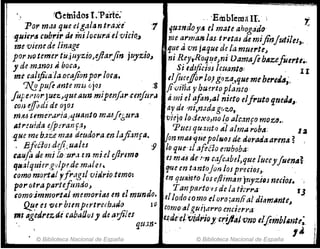 Gemidos I. Parte.
Por mas que el galan traxe 7
quiera cubrir de mi locura el vicio,
me viene de linage
por no temer tu juyzio, estar sin juyzio,
y de manos à boca,
me califica la ocasion por loca.
8
me que aun mi pensar censura
con esso di de ojos
mas temeraria, quanto mas segura
atreuida esperança,
que me haze mas deudora en la fiança.
Efectos desiguales 9
causa de mi lo ura en mi el esfremo
qualquier golpe de males,
como mortal y fragil vidrio temo:
por otra parte fundo,
como immortal memorias en el mundo.
Que es ver bien pertrechado 10
mi agedrez de caballos y de arfiles
quan-
Emblema II. 7
quando ya el mate ahogado
me arman las tretas de mi fin sutiles,
que à vn jaque de la muerte,
ni Rey, Roque, ni Dama se haze fuerte.
Si edificios leuanto 11
el sucessor los goza, que me hereda,
si viña y huerto planto
à mi el afan, al nieto el fruto queda,
ay de mi, nada gozo,
que viejo lo dexo, no lo alcanço moço.
Pues quanto al alma roba 12
son mas que poluos de dorada arena?
lo que
es mas de vn cascabel, que luce y suena?
que en tanto son los precios,
en quanto los estiman juyzios necios.
Tan partos de la tierra 13
el lodo como el oro; ansi al diamante,
como al guijarro encierra